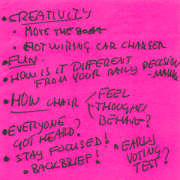 • CREATIVITY
• MOVE THE BOAT
• HOT WIRING CAR CHARGER
• FUN.
• HOW IS IT DIFFERENT
FROM YOUR DAILY DECISION
- MAKING
• HOW CHAIR
FEEL
THOUGHTS
BEHAVE?
• EVERYONE?
GOT HEARD!
• STAY FOCUSED!
• BACKBRIEF!
• EARLY
VOTING
TEST?